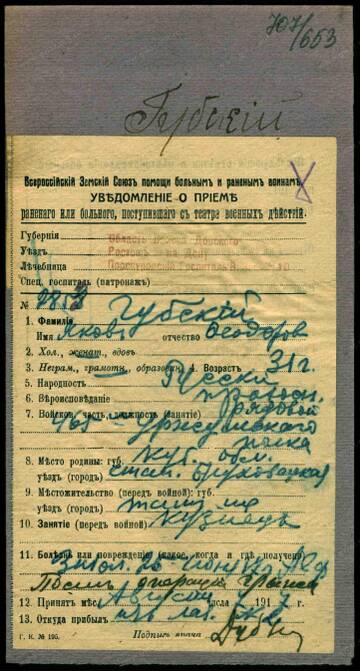 707/653
Губскій
Всероссійскій Земскій Союзъ помощи больнымъ и раненымъ воинамъ
УВѢДОМЛЕНІЕ О ПРІЕМѢ
раненаго или больного, поступившаго съ театра военныхъ дѣйствій.
Губернія Область Войска Донского
Уѣздъ Ростовъ на Дону
Лѣчебница
Спец. госпиталь (патронажъ)
№
1. Фамилія Губскій
Имя Яковъ отчество Ѳеодоров
2. Хол., женат., вдовъ
3. Неграм., грамотн., образован. 4. Возрастъ 31 г.
5. Народность Русскій
6. Вѣроисповѣданіе правосл.
7. Войсков. часть, должность (занятіе) рядовой
465 Уржумскаго
полка
8. Мѣсто родины: губ. Куб. обл.
уѣздъ (городъ) стан. Брюховецкая
9. Мѣстожительство (передъ войной): губ.
уѣздъ (городъ) тамъ же
10. Занятіе (передъ войной) Кузнецъ
11. Болѣзнь или поврежденіе (какое, когда и гдѣ получено)
Послѣ операціи грыжи
12. Принятъ мѣс. Августа числа 1917 г.
13. Откуда прибылъ
Г. К. № 195. Подпись врача